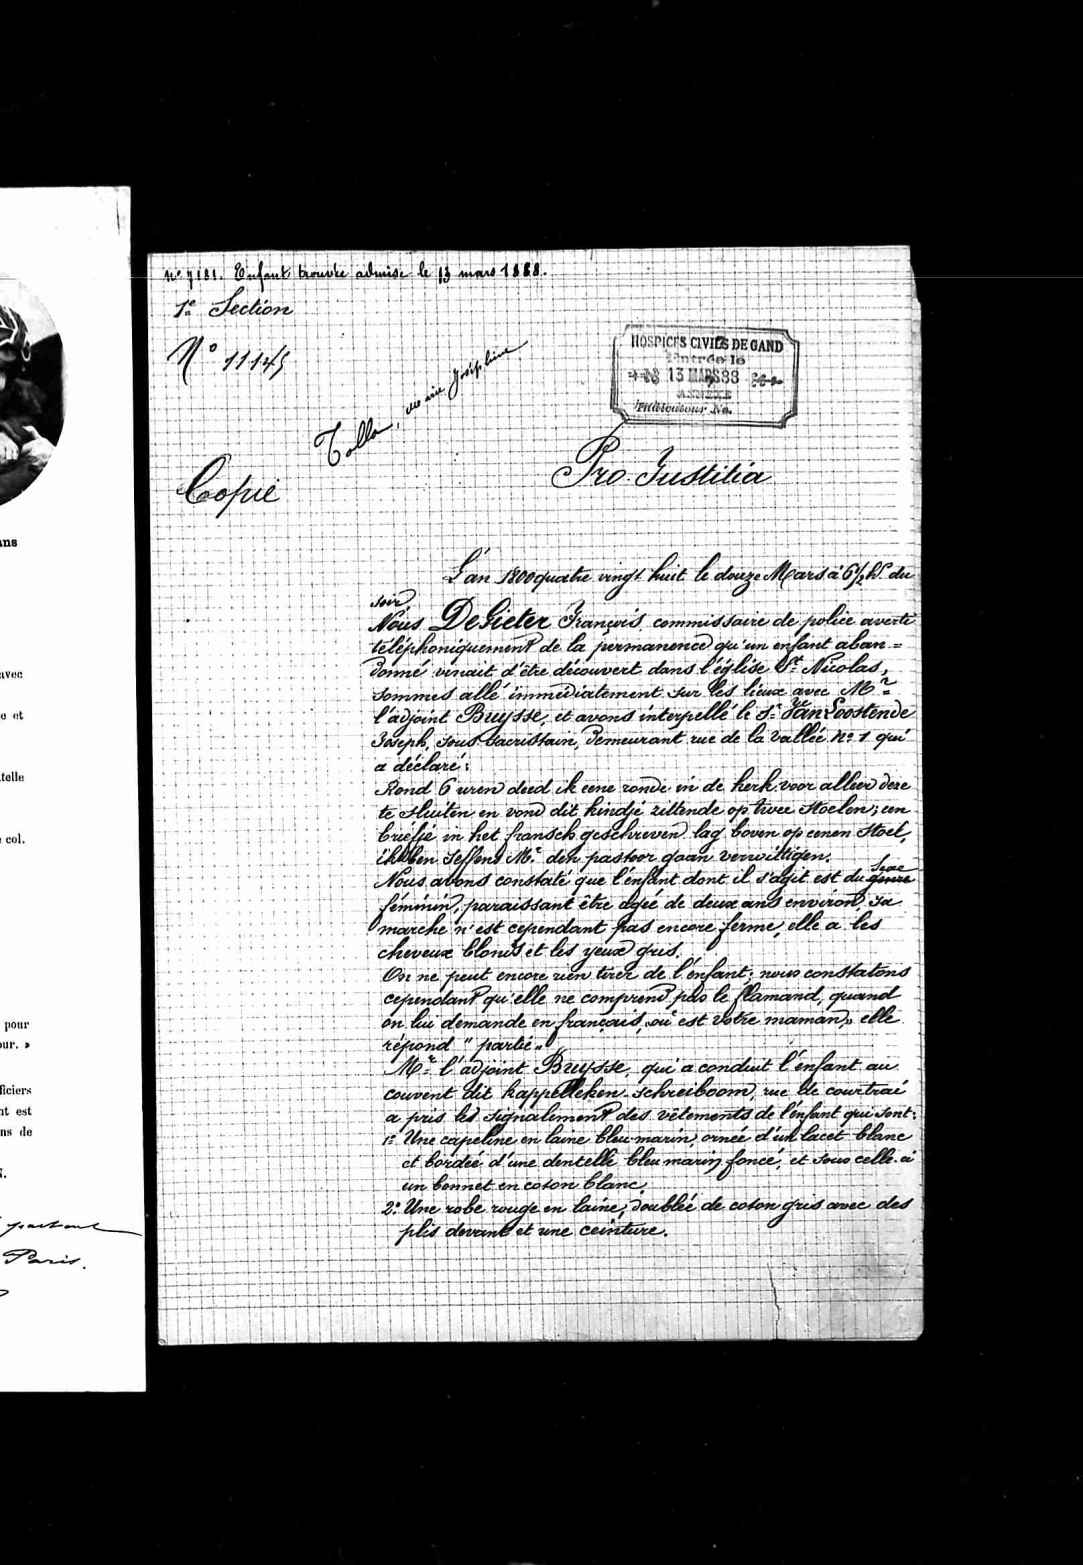 ans
avec
e et
telle
e col.
pour
our. »
ficiers
nt est
ns de
partout
Paris.
No 7181. Enfant trouvée admise le 13 mars 1888.
1e Section
No 11145
HOSPICES CIVILS DE GAND
Entrée le
13 MARS 88
ANNEXE
Indicateur No.
Tolla, Joséphine
Copie
Pro Justitia
L'an 1800 quatre vingt huit le douze Mars à 6 1/2 hs. du
soir
Nous DeGieter François, commissaire de police averti
téléphoniquement de la permanence qu'un enfant aban=
donné venait d'être découvert dans l'église St Nicolas,
sommes allé immédiatement sur les lieux avec Mr
l'adjoint Buysse, et avons interpellé le Sr Van Loostende
Joseph, sous-sacristain, demeurant rue de la Vallée no 1 qui
a déclaré:
Rond 6 uren deed ik eene ronde in de kerk voor alleer deze
te sluiten en vond dit kindje zittende op twee stoelen; een
briefje in het fransch geschreven lag boven op eenen stoel,
ik ben seffens Mr den pastoor gaan verwittigen.
Nous avons constaté que l'enfant dont il s'agit est du genre sexe
féminin, paraissant être agée de deux ans environ, sa
marche n'est cependant pas encore ferme, elle a les
cheveux blonds et les yeux gris.
On ne peut encore rien tirer de l'enfant; nous constatons
cependant qu'elle ne comprend pas le flamand, quand
on lui demande en français, «où est votre maman» elle
répond "partie"
Mr l'adjoint Buysse, qui a conduit l'enfant au
couvent dit kappelleken-schreiboom, rue de courtrai
a pris les signalement des vêtements de l'enfant qui sont:
1o Une capeline en laine bleu marin, ornée d'un lacet blanc
et bordée d'une dentelle bleu marin foncé, et sous celle-ci
un bonnet en coton blanc
2o Une robe rouge en laine, doublée de coton gris avec des
plis devant et une ceinture.